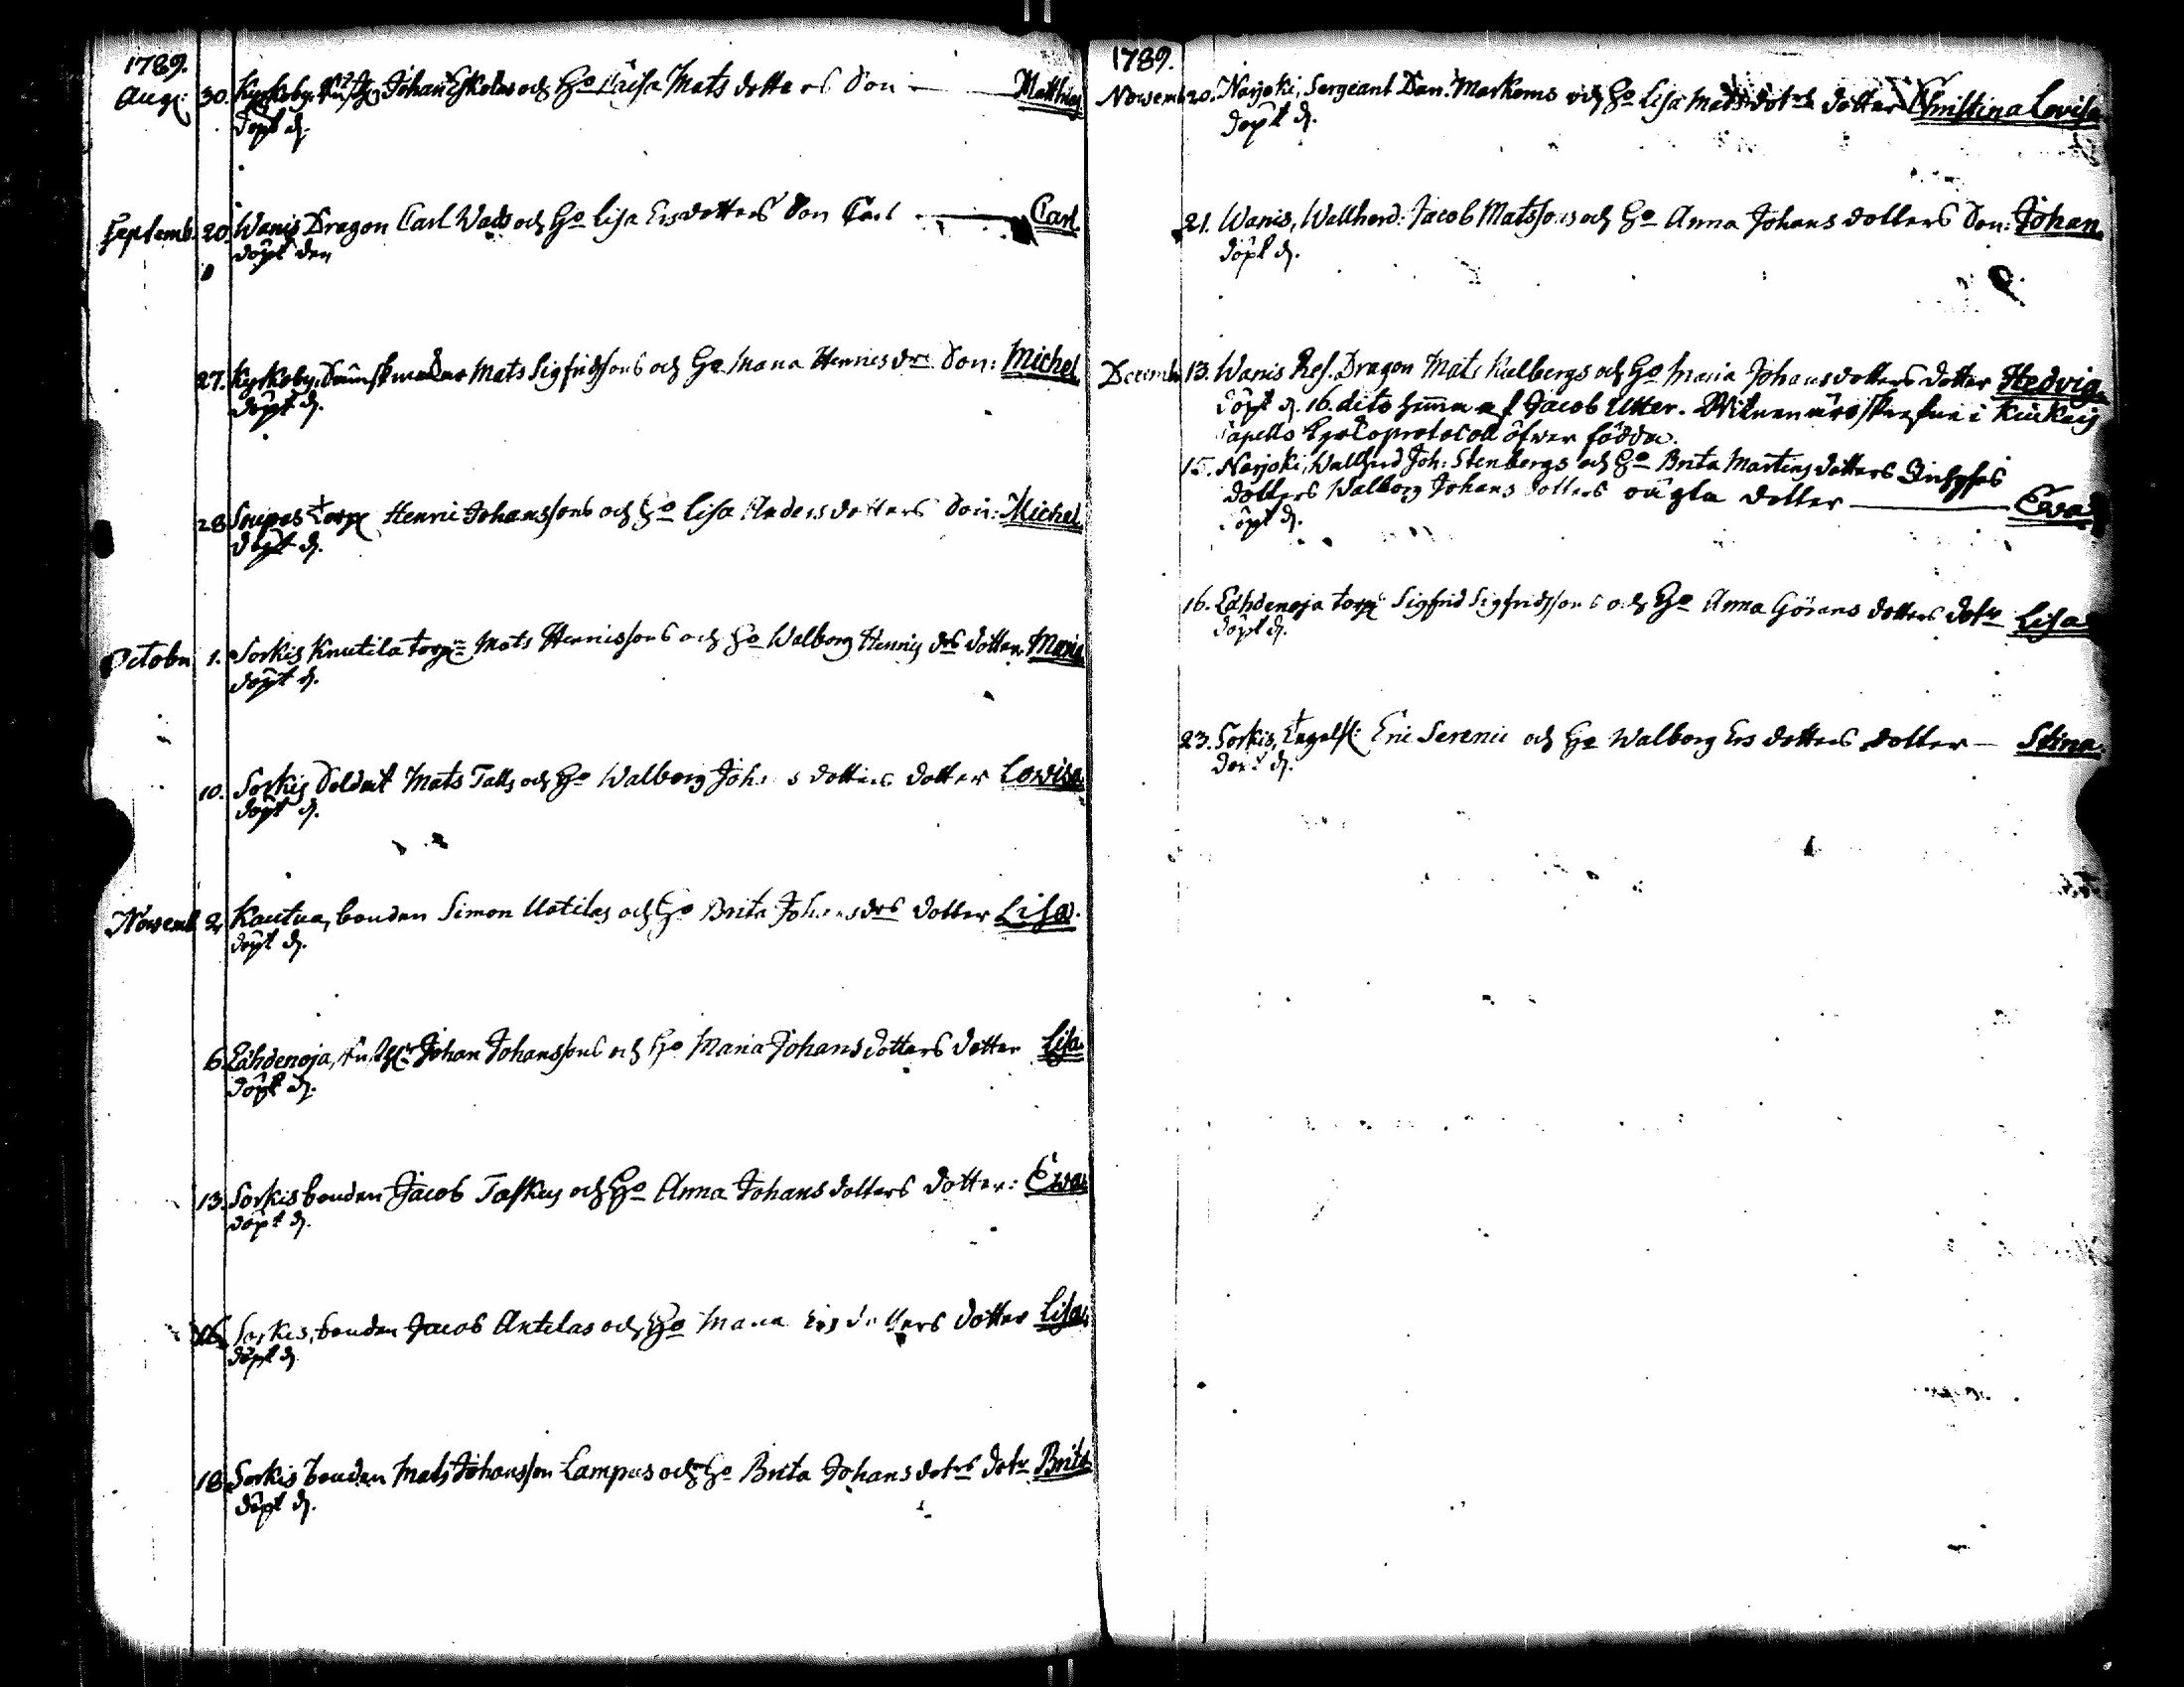 1789.
Aug: 30. Kyrkoby, Johan Eskolas och Ho Caisa Mats dotters Son — Matthias
döpt d.
Septemb. 20. Wanis Dragon Carl Wads och Ho Lisa Ersdotters Son Carl — Carl.
döpt den
27. Kyrkoby, Mats Sigfridssons och Ho Maria Henricsdrs Son: Michel.
döpt d.
28. Torp Henric Johanssons och Ho Lisa Andersdotters Son: Michel.
döpt d.
Octobr. 1. Sorkis Knutila torp: Mats Henricssons och Ho Walborg Henrics drs dotter Maria
döpt d.
10. Sorkis Soldat Mats Talls och Ho Walborg Johans dotters dotter Lovisa
döpt d.
Novemb. 2. Kautua, bonden Simon Uotilas och Ho Brita Johansdrs dotter Lisa.
döpt d.
6. Lähdenoja, Johan Johanssons och Ho Maria Johansdotters dotter Lisa.
döpt d.
13. Sorkis bonden Jacob Taskus och Ho Anna Johansdotters dotter: Ewa
döpt d.
16. Sorkis, bonden Jacob Antilas och Ho Maria Ersdotters dotter Lisa.
döpt d.
18. Sorkis bonden Mats Johansson Lampus och Ho Brita Johans dotrs dotr Brita
döpt d.
1789.
Novemb 20. Narjoki, Sergeant Dan. Markems och Ho Lisa Mats dotrs dotter Christina Lovisa
döpt d.
21. Wanis, Wallherd. Jacob Matssons och Ho Anna Johans dotters Son: Johan.
döpt d.
Decemb. 13. Wanis Res. Dragon Mats Kulbergs och Ho Maria Johansdotters dotter Hedvig
döpt d. 16. dito hemma af Jacob Utter. Witnen äro skrefne i
Capells protocoll öfwer födda.
15. Narjoki, Wallherd Joh: Stenbergs och Ho Brita Martins dotters
dotters Walborg Johans dotters oägta dotter — Ewa
döpt d.
16. Lähdenoja torp: Sigfrid Sigfridssons och Ho Anna Görans dotters dotr Lisa
döpt d.
23. Sorkis, Eric Serenii och Ho Walborg Ersdotters dotter — Stina.
döpt d.